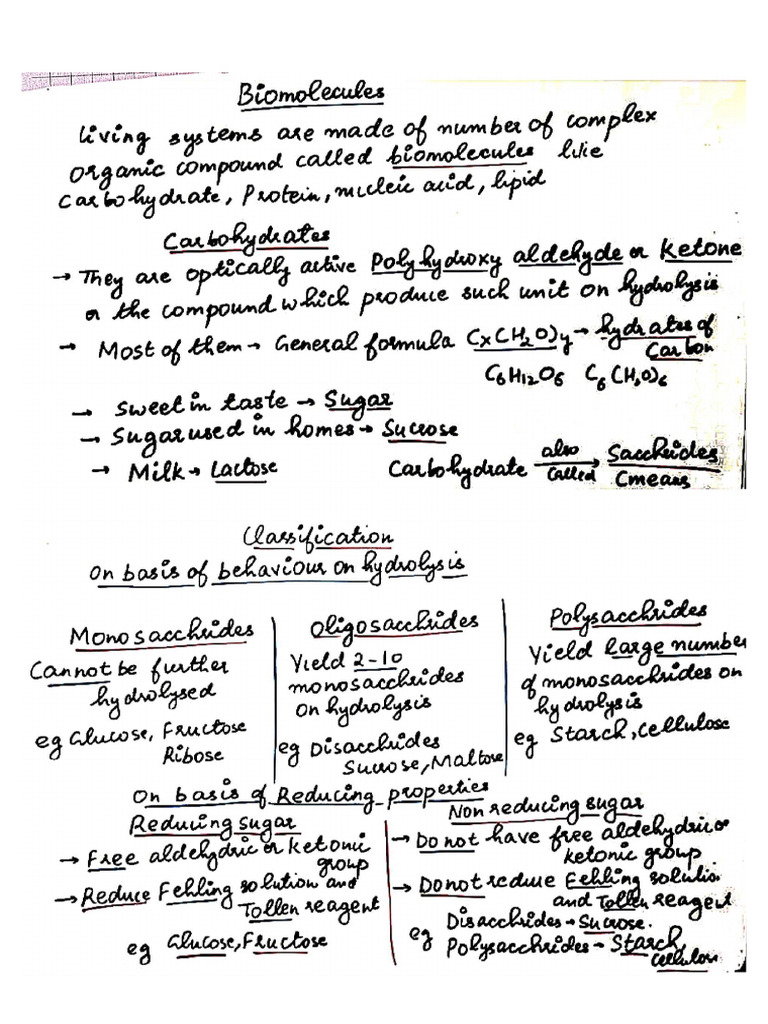 Biomolecules
Living systems are made of number of complex
organic compound called biomolecules like
Carbohydrate, Protein, nucleic acid, lipid
Carbohydrates
→ They are optically active Polyhydroxy aldehyde or Ketone
or the compound which produce such unit on hydrolysis
→ Most of them → General formula Cx(H2O)y → hydrates of
Carbon
C6H12O6 C6(H2O)6
→ Sweet in taste → Sugar
→ Sugar used in homes → Sucrose
→ Milk → Lactose
Carbohydrate also called → Sacchrides
Cmeans
Classification
On basis of behaviour on hydrolysis
Monosacchrides
Cannot be further
hydrolysed
eg Glucose, Fructose
Ribose
Oligosacchrides
Yield 2-10
monosacchrides
on hydrolysis
eg Disacchrides
Sucrose, Maltose
Polysacchrides
Yield large number
of monosacchrides on
hydrolysis
eg Starch, Cellulose
On basis of Reducing properties
Reducing sugar
→ Free aldehydric or ketonic
group
→ Reduce Fehling solution and
Tollen reagent
eg Glucose, Fructose
Non reducing sugar
→ Do not have free aldehydric or
ketonic group.
→ Do not reduce Fehling solution
and Tollen reagent
eg Disacchrides → Sucrose.
Polysacchrides → Starch,
cellulose